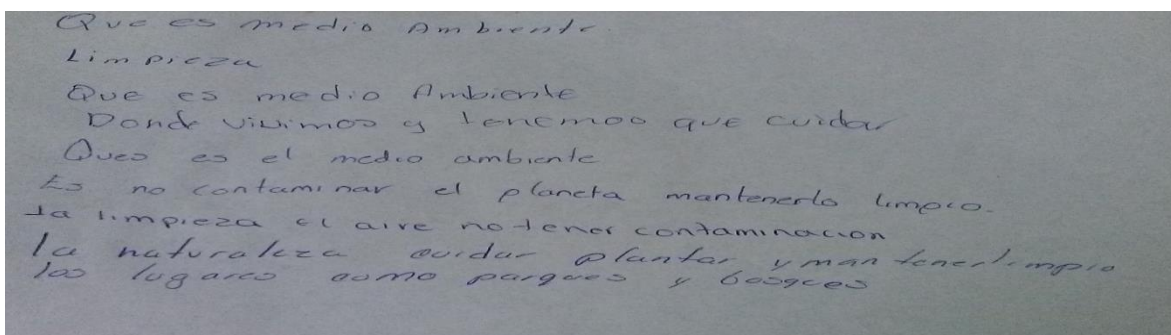 Que es medio Ambiente
Limpieza
Que es medio Ambiente
Donde vivimos y tenemos que cuidar
Ques es el medio ambiente
Es no contaminar el planeta mantenerlo limpio.
la limpieza el aire no tener contaminacion
la naturaleza cuidar plantar y mantener limpio
los lugares como parques y bosques